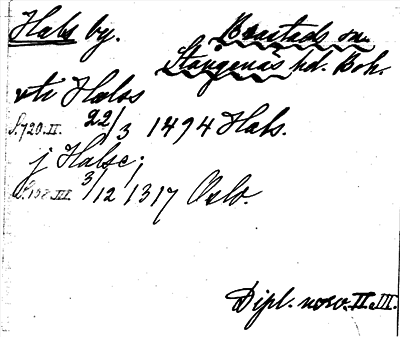 Hals by. Brastads sn.
Stångenäs hd. Boh.
vti Halss
S. 720. II. 22/3 1494 Hals.
j Halse;
S. 158. III. 3/12 1317 Oslo.
Dipl. norv. II. III.